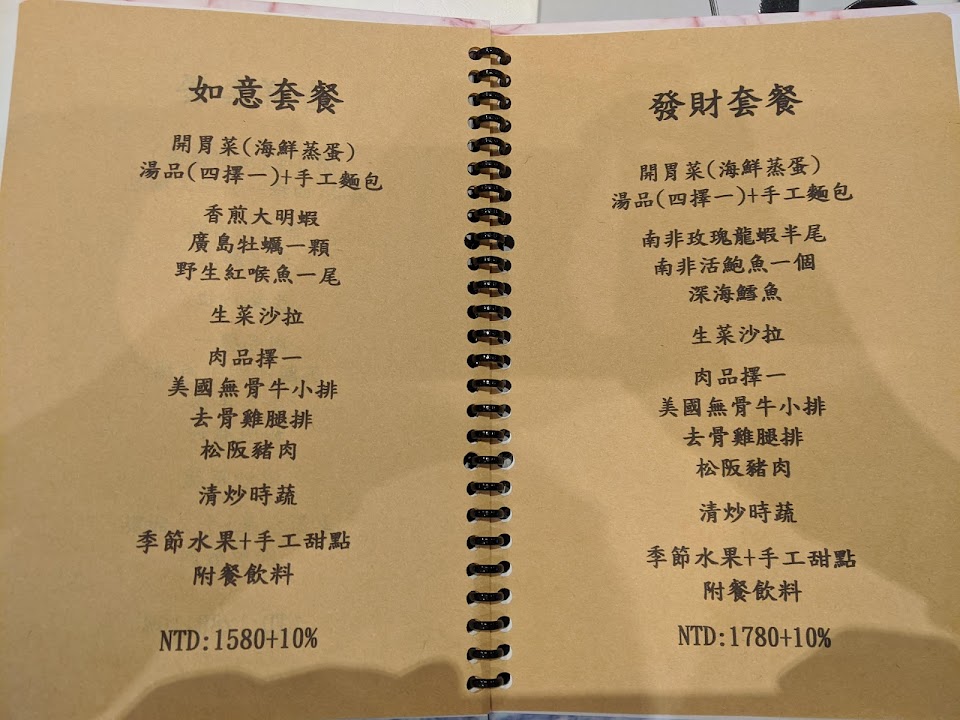 如意套餐
開胃菜(海鮮蒸蛋)
湯品(四擇一)+手工麵包
香煎大明蝦
廣島牡蠣一顆
野生紅喉魚一尾
生菜沙拉
肉品擇一
美國無骨牛小排
去骨雞腿排
松阪豬肉
清炒時蔬
季節水果+手工甜點
附餐飲料
NTD:1580+10%
發財套餐
開胃菜(海鮮蒸蛋)
湯品(四擇一)+手工麵包
南非玫瑰龍蝦半尾
南非活鮑魚一個
深海鱈魚
生菜沙拉
肉品擇一
美國無骨牛小排
去骨雞腿排
松阪豬肉
清炒時蔬
季節水果+手工甜點
附餐飲料
NTD:1780+10%